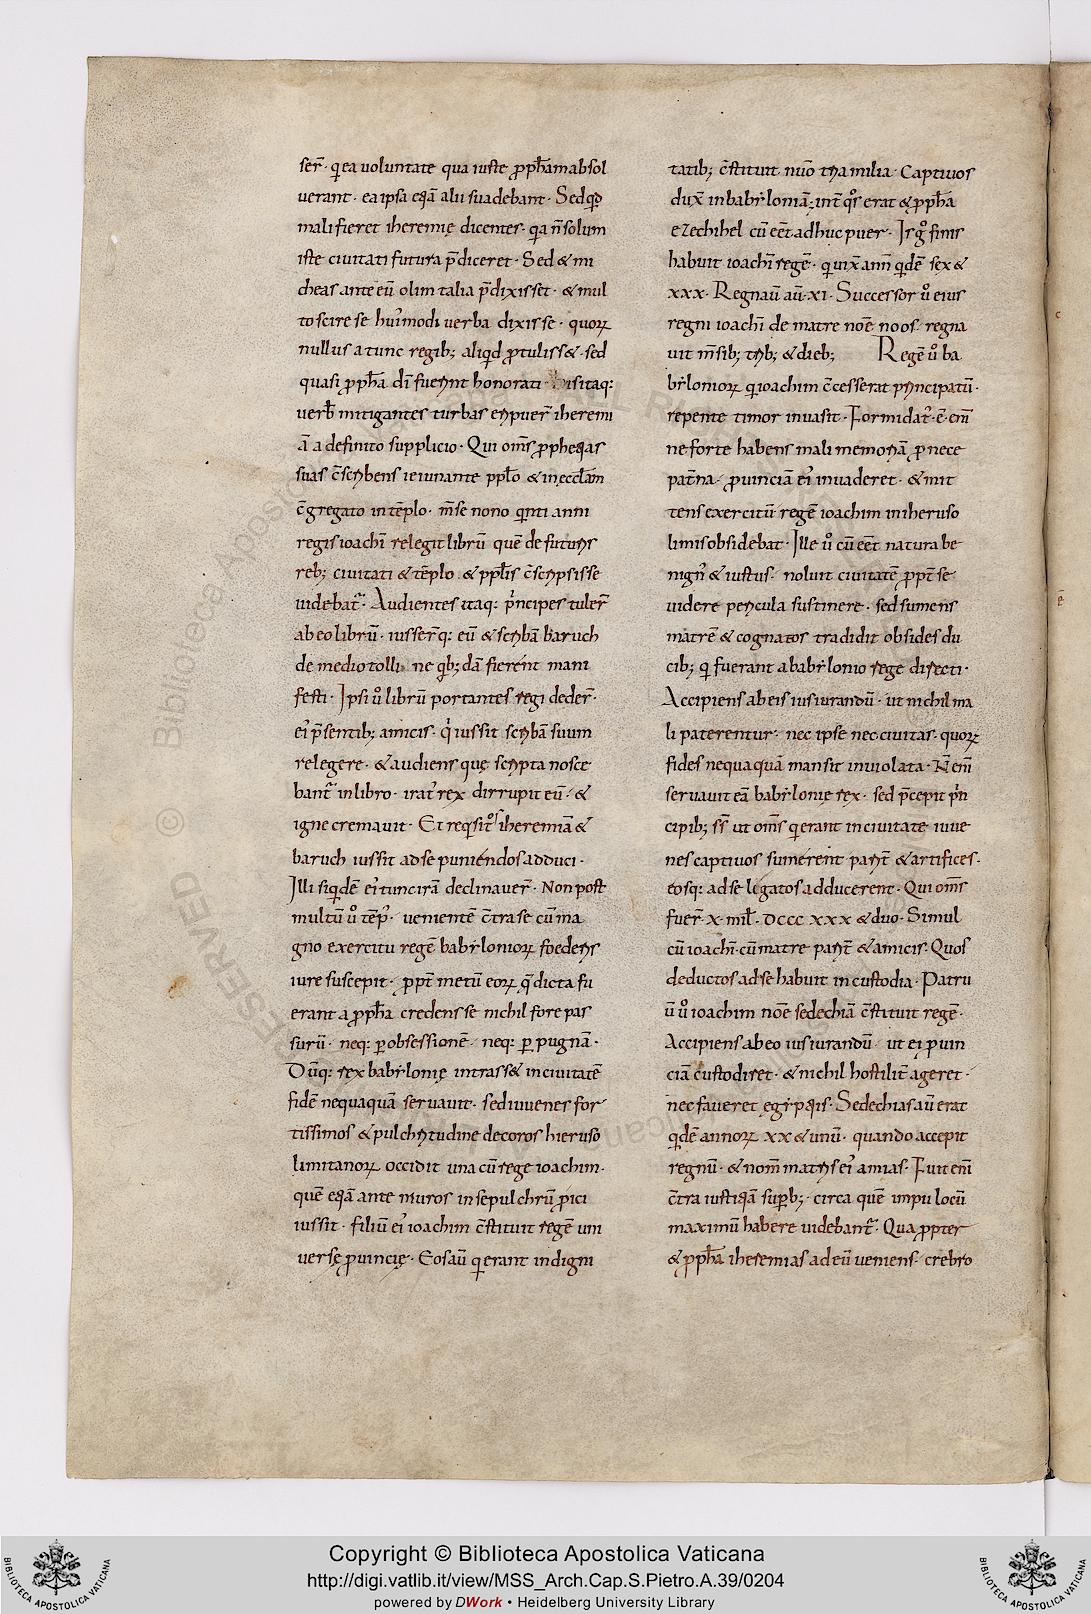 serͬ · q̇ ea uoluntate qua iuste ꝓph̄am absol
uerant · ea ipsa etiā alii suadebant · Sed qđ
mali fieret iheremię dicentes · qa n̄ solum
iste ciuitati futura p̄diceret · Sed & mi
cheas ante eū olim talia p̄dixisset · & mul
to scire se hui᷒modi uerba dixisse · quoꝝ
nullus a tunc regib; aliqđ ꝓtuliss& · sed
quasi ꝓph̄a dī fuerint honorati · His itaq:
uerb̄ mitigantes turbas eripuer̄ iheremi
ā a definito supplicio · Qui om̄s ꝓphetias
suas c̄scribens ieiunante pplo & in eccl̄am
c̄gregato in tēplo · m̄se nono qinti anni
regis ioachī relegit librū quē de futuris
reb; ciuitati & tēplo & ppl̄is c̄scripsisse
uidebat᷑ · Audientes itaq: p̄ncipes tuler̄
ab eo librū · iusser̄q: eū & scribā baruch
de medio tolli ne qb;dā fierent mani
festi · Ipsi ů librū portantes regi deder̄ ·
ei᷒ p̄sentib; amicis · q̇ iussit scribā suum
relegere · & audiens quę scripta nosce
bant᷑ in libro · irat᷒ rex dirrupit eū · &
igne cremauit · Et reqsitos iheremiā &
baruch iussit ad se puniendos adduci ·
Illi siqdē ei᷒ tunc irā declinauer̄ · Non post
multū ů tēp᷒ · uenientē c̄tra se cū ma
gno exercitu regē babiloniorꝝ foederis
iure suscepit · ꝓpt̄ metū eorꝝ q̄ dicta fu
erant a ꝓph̄a credens se nichil fore pas
surū · neq: ꝑ obsessionē · neq: ꝑ pugnā ·
Dūq: rex babilonię intrass& in ciuitatē
fidē nequaquā seruauit · sed iuuenes for
tissimos & pulchritudine decoros hieruso
limitanorꝝ occidit una cū rege ioachim ·
quē etiā ante muros insepulchrū ꝓici
iussit · filiū ei᷒ ioachim c̄stituit regē uni
uersę ꝓuincię · Eos aū q̇ erant in digni
tatib; c̄stituti nūo tria milia · Captiuos
dux̄ in babiloniā · int̄ qͦs erat & ꝓph̄a
ezechihel cū eēt adhuc puer · Is gͦ finis
habuit ioachī regē · q̇ uix̄ ann̄ qdē sex &
xxx · Regnau̅ aū · xi · Successor ů eius
regni ioachī de matre noē noos · regna
uit m̄sib; trib; & dieb; Regē ů ba
biloniorꝝ q̇ ioachim c̄cesserat principatū ·
repente timor inuasit · Formidat᷒ · ē · em̄
ne forte habens mali memoriā ꝓ nece
pat̄na · ꝓuinciā ei᷒ inuaderet · & mit
tens exercitū regē ioachim in iheruso
limis obsidebat · Ille ů cū eēt natura be
nign᷒ & iustus · noluit ciuitatē ꝓpt̄ se
uidere pericula sustinere · sed sumens
matrē & cognatos tradidit obsides du
cib; q̇ fuerant a babilonio rege directi ·
Accipiens ab eis iusiurandū · ut nichil ma
li paterentur · nec ipse nec ciuitas · quorꝝ
fides nequaquā mansit inuiolata · N̄ em̄
seruauit eā babilonię rex · sed p̄cepit p̄n
cipib; ss̄ ut om̄s q̇ erant in ciuitate iuue
nes captiuos sumerent parit̄ & artifices ·
eosq: ad se ligatos adducerent · Qui om̄s
fuer̄ · x · mil̄ · dccc xxx & duo · Simul
cū ioachī · cū matre parit̄ & amicis · Quos
deductos ad se habuit in custodia · Patru
ū ů ioachim noē sedechiā c̄stituit regē ·
Accipiens ab eo iusiurandū · ut ei ꝓuin
ciā custodiret · & nichil hostilit̄ ageret ·
nec faueret egiptiis · Sedechias aū erat
qdē annorꝝ xx & unū · quando accepit
regnū · & nom̄ matris ei᷒ amias · Fuit em̄
c̄tra iustitiā suꝑb; · circa quē impii locū
maximū habere uidebant᷑ · Qua ꝓpter
& ꝓph̄a iheremias ad eū ueniens · crebro
Copyright © Biblioteca Apostolica Vaticana
http://digi.vatlib.it/view/MSS_Arch.Cap.S.Pietro.A.39/0204
powered by DWork • Heidelberg University Library